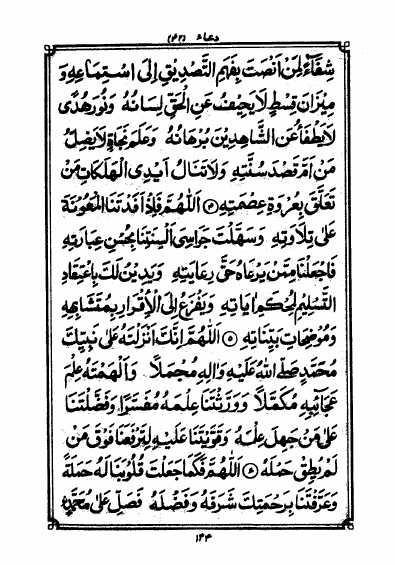 دعاء (۴۲)
شِفَآءً لِمَنْ اَنْصَتَ بِفَهَمِ التَّصْدِيْقِ اِلَى اسْتِمَاعِهٖ وَ
مِيْزَانَ قِسْطٍ لَا يَحِيْفُ عَنِ الْحَقِّ لِسَانُهٗ وَ نُوْرَ هُدًى
لَا يَطْفَاُ عَنِ الشَّاهِدِيْنَ بُرْهَانُهٗ وَ عَلَمَ نَجَاةٍ لَا يَضِلُّ
مَنْ اَمَّ قَصْدَ سُنَّتِهٖ وَ لَا تَنَالُ اَيْدِى الْهَلَكَاتِ مَنْ
تَعَلَّقَ بِعُرْوَةِ عِصْمَتِهٖ اَللّٰهُمَّ فَاِذْ اَفَدْتَنَا الْمَعُوْنَةَ
عَلٰى تِلَاوَتِهٖ وَ سَهَّلْتَ جَوَاسِىَ اَلْسِنَتِنَا بِحُسْنِ عِبَارَتِهٖ
فَاجْعَلْنَا مِمَّنْ يَرْعَاهُ حَقَّ رِعَايَتِهٖ وَ يَدِيْنُ لَكَ بِاعْتِقَادِ
التَّسْلِيْمِ لِمُحْكَمِ اٰيَاتِهٖ وَ يَفْزَعُ اِلَى الْاِقْرَارِ بِمُتَشَابِهِهٖ
وَ مُوْضَحَاتِ بَيِّنَاتِهٖ ۵ اَللّٰهُمَّ اِنَّكَ اَنْزَلْتَهٗ عَلٰى نَبِيِّكَ
مُحَمَّدٍ صَلَّى اللّٰهُ عَلَيْهِ وَ اٰلِهٖ مُجْمَلًا وَ اَلْهَمْتَهٗ عِلْمَ
عَجَآئِبِهٖ مُكَمَّلًا وَ وَرَّثْتَنَا عِلْمَهٗ مُفَسَّرًا وَ فَضَّلْتَنَا
عَلٰى مَنْ جَهِلَ عِلْمَهٗ وَ قَوَّيْتَنَا عَلَيْهِ لِتَرْفَعَنَا فَوْقَ مَنْ
لَمْ يُطِقْ حَمْلَهٗ اَللّٰهُمَّ فَكَمَا جَعَلْتَ قُلُوْبَنَا لَهٗ حَمَلَةً
وَ عَرَّفْتَنَا بِرَحْمَتِكَ شَرَفَهٗ وَ فَضْلَهٗ فَصَلِّ عَلٰى مُحَمَّدٍ
۱۴۴